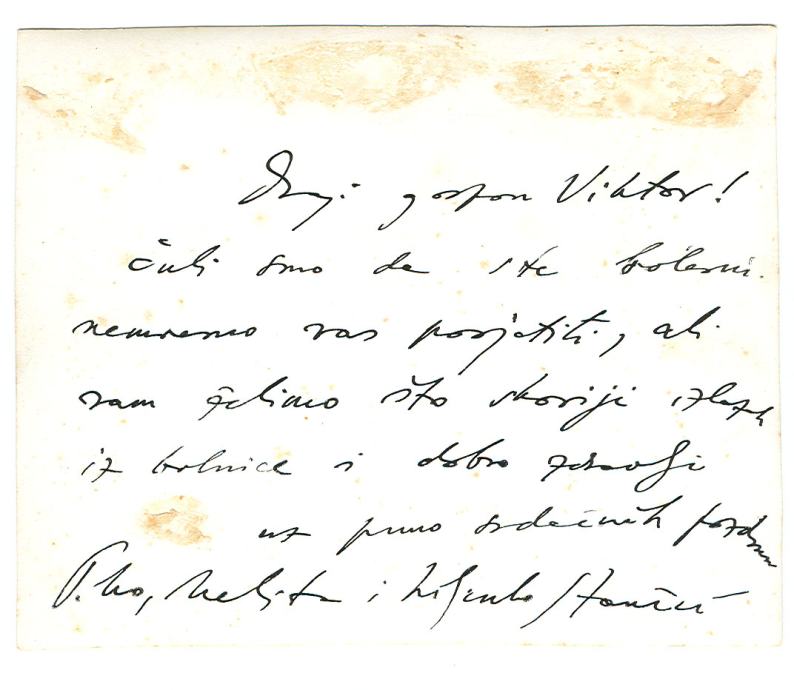 Dragi gospon Viktor!
čuli smo da ste bolesni.
nemremo vas posjetiti, ali
vam želimo što skoriji izlazak
iz bolnice i dobro zdravlje
uz puno srdačnih pozdrava
i Miljenko Stančić